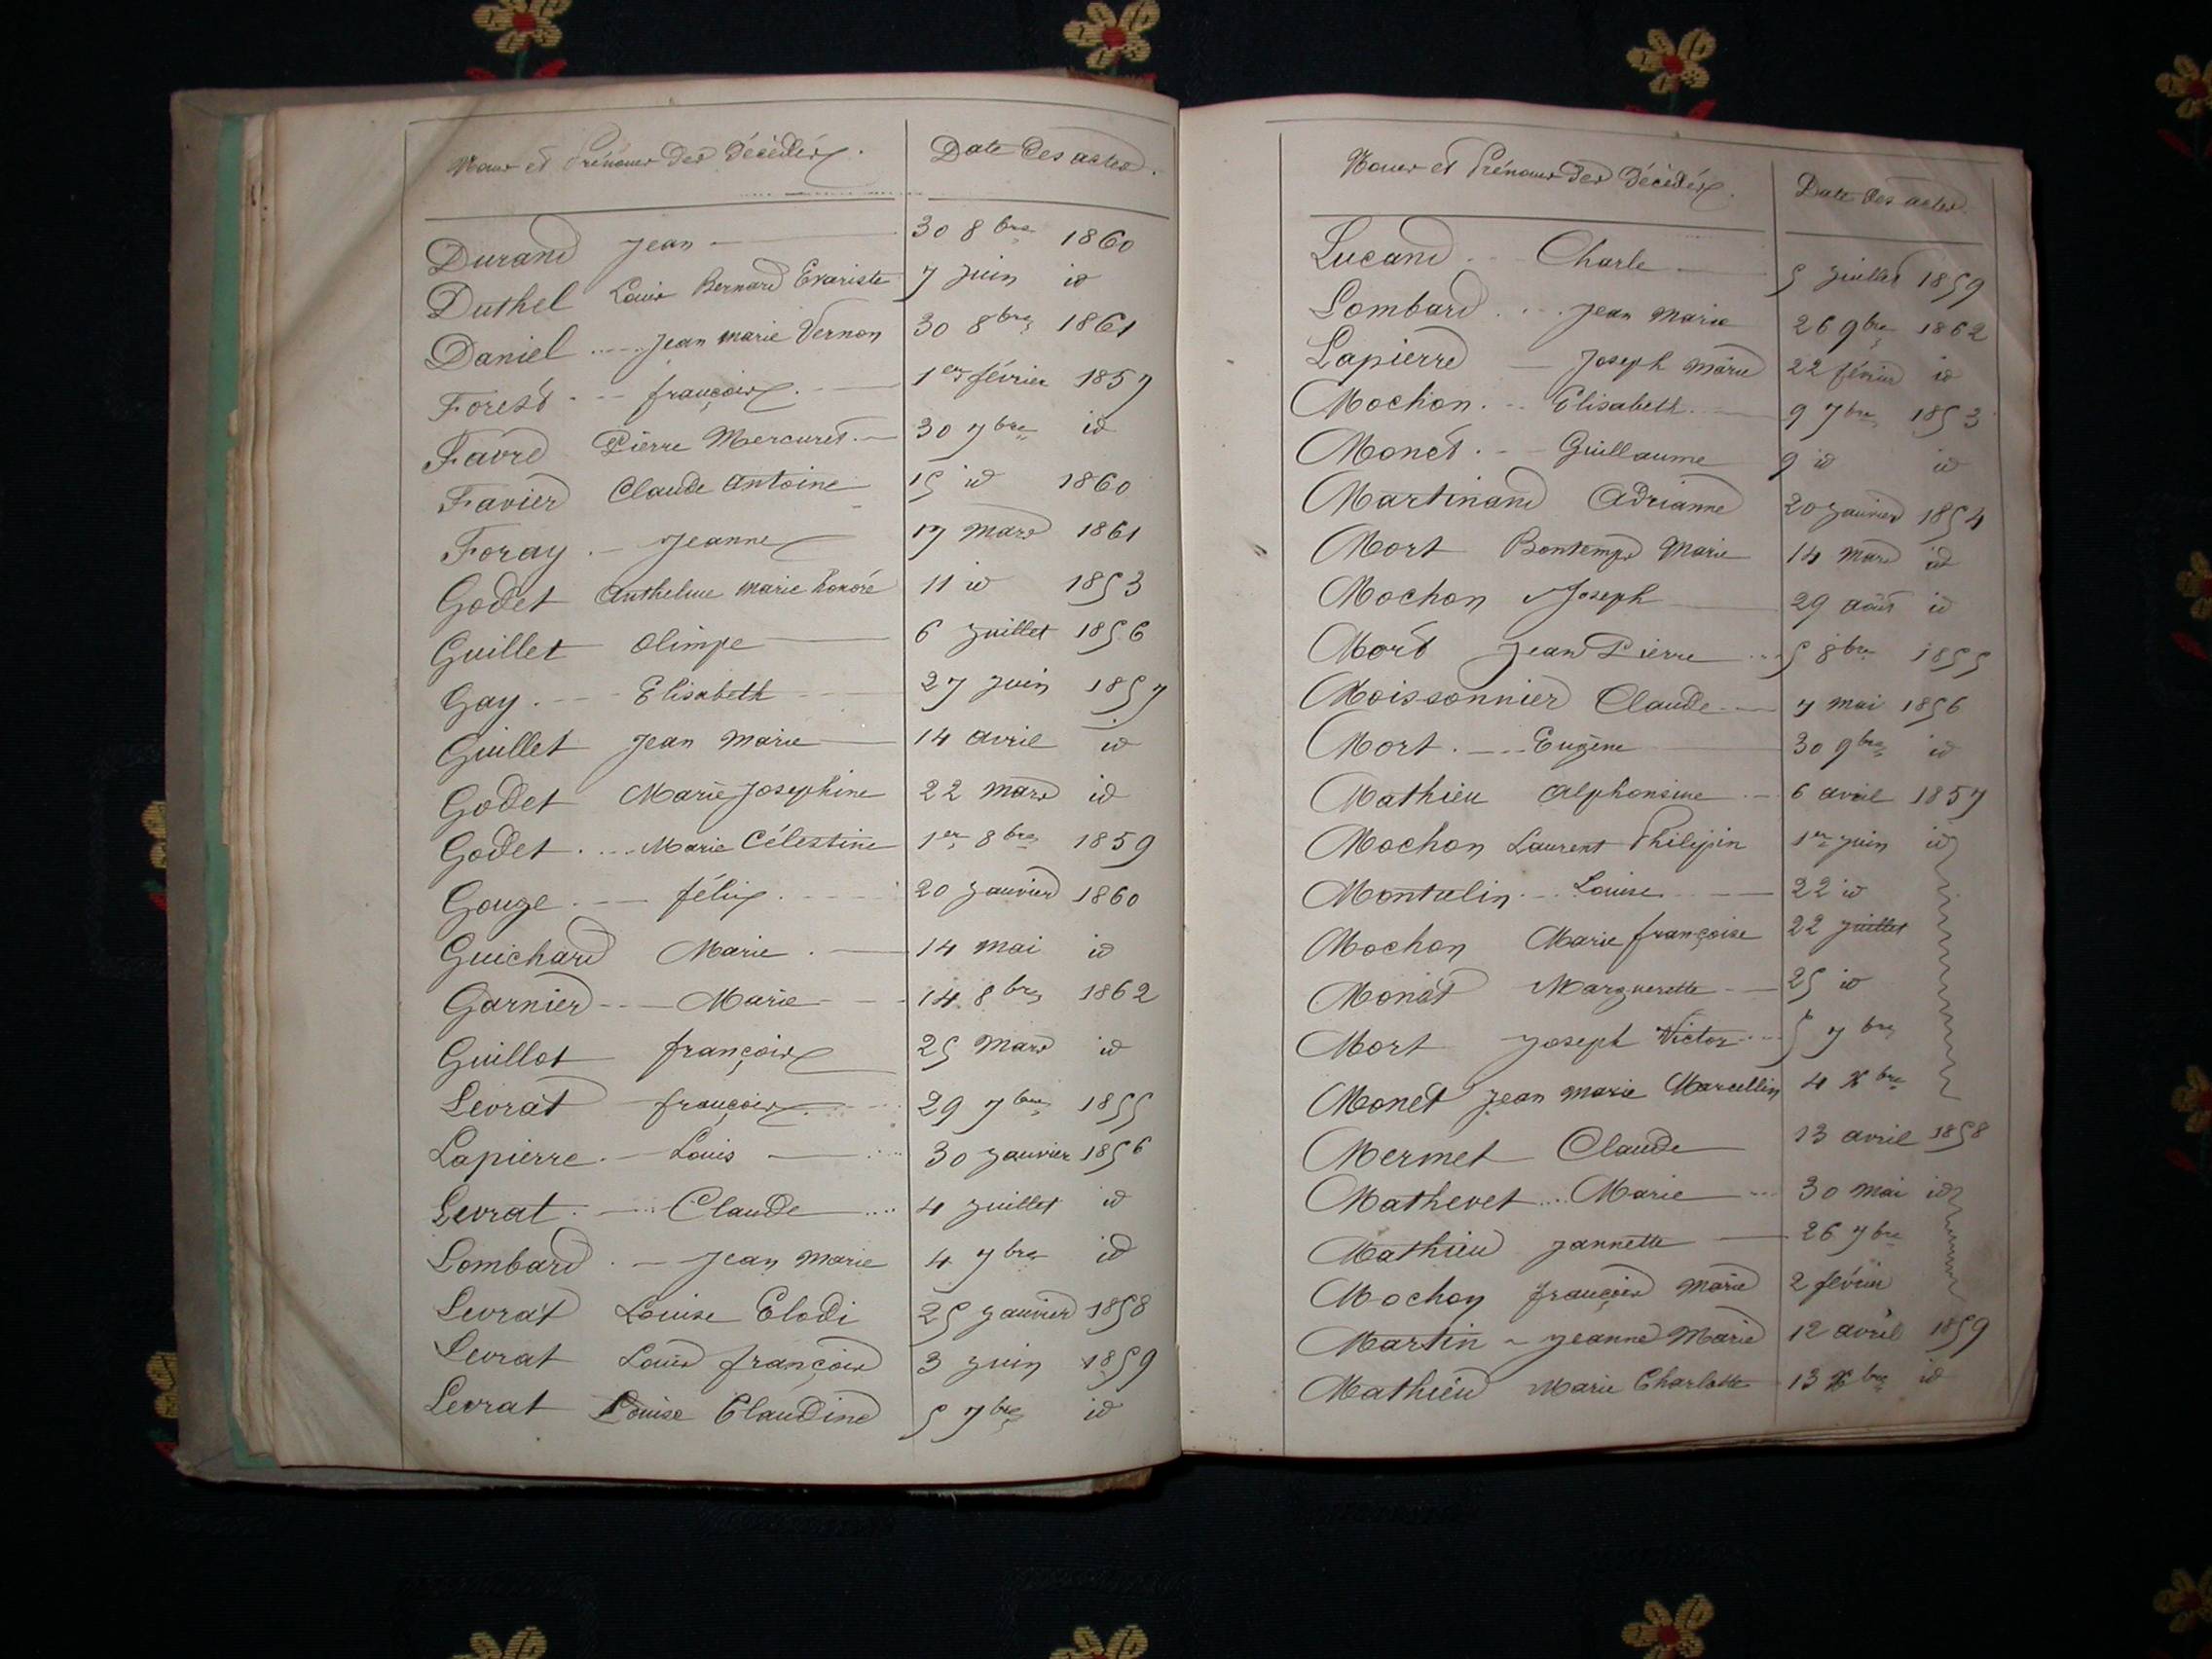 Noms et Prénoms des décédés. Date des actes.
Durand Jean 30 8bre 1860
Duthel Louis Bernard Evariste 7 juin id
Daniel Jean Marie Vernon 30 8bre 1861
Forest françois 1er février 1857
Favre Pierre Mercuret 30 7bre id
Favier Claude Antoine 15 id 1860
Foray Jeanne 17 mars 1861
Godet Anthelme Marie honoré 11 id 1853
Guillet Olimpe 6 juillet 1856
Gay Elisabeth 27 juin 1857
Guillet Jean Marie 14 avril id
Godet Marie Josephine 22 mars id
Godet Marie Célestine 1er 8bre 1859
Gouge félix 20 janvier 1860
Guichard Marie 14 mai id
Garnier Marie 14 8bre 1862
Guillot françois 25 mars id
Levrat françois 29 7bre 1855
Lapierre Louis 30 janvier 1856
Levrat Claude 4 juillet id
Lombard Jean Marie 4 7bre id
Levrat Louise Elodi 25 janvier 1858
Levrat Louis françois 3 juin 1859
Levrat Louise Claudine 5 7bre id
Noms et Prénoms des décédés. Date des actes.
Lucand Charle 5 juillet 1859
Lombard Jean Marie 26 9bre 1862
Lapierre Joseph Marie 22 février id
Mochon Elisabeth 9 7bre 1853
Monet Guillaume 9 id id
Martinand Adrianne 20 janvier 1854
Mort Bontemps Marie 14 mars id
Mochon Joseph 29 août id
Mort Jean Pierre 5 8bre 1855
Moissonnier Claude 7 mai 1856
Mort Eugène 30 9bre id
Mathieu Alphonsine 6 avril 1857
Mochon Laurent Philipin 1er juin id
Montulin Louise 22 id
Mochon Marie françoise 22 juillet
Monet Marguerette 25 id
Mort Joseph Victor 5 7bre
Monet Jean Marie Marcellin 4 Xbre
Mermet Claude 13 avril 1858
Mathevet Marie 30 mai id
Mathieu Jannette 26 7bre
Mochon françois Marie 2 février
Martin Jeanne Marie 12 avril 1859
Mathieu Marie Charlotte 13 Xbre id